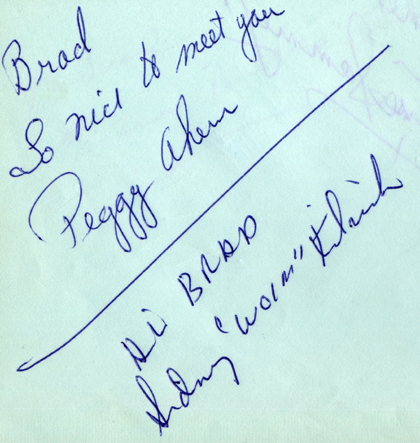 Brad
So nice to meet you
Peggy Ahern
Hi BRAD
Sidney "WOIM" Kibrick